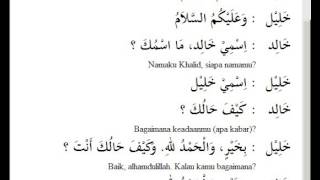 خَلِيْل : وَعَلَيْكُمُ السَّلاَمُ
خَالِد : اِسْمِيْ خَالِد، مَا اسْمُكَ ؟
Namaku Khalid, siapa namamu?
خَلِيْل : اِسْمِيْ خَلِيْل
خَالِد : كَيْفَ حَالُكَ ؟
Bagaimana keadaanmu (apa kabar)?
خَلِيْل : بِخَيْرٍ، وَالْحَمْدُ لِلهِ. وَكَيْفَ حَالُكَ أَنْتَ ؟
Baik, alhamdulillah. Kalau kamu bagaimana?